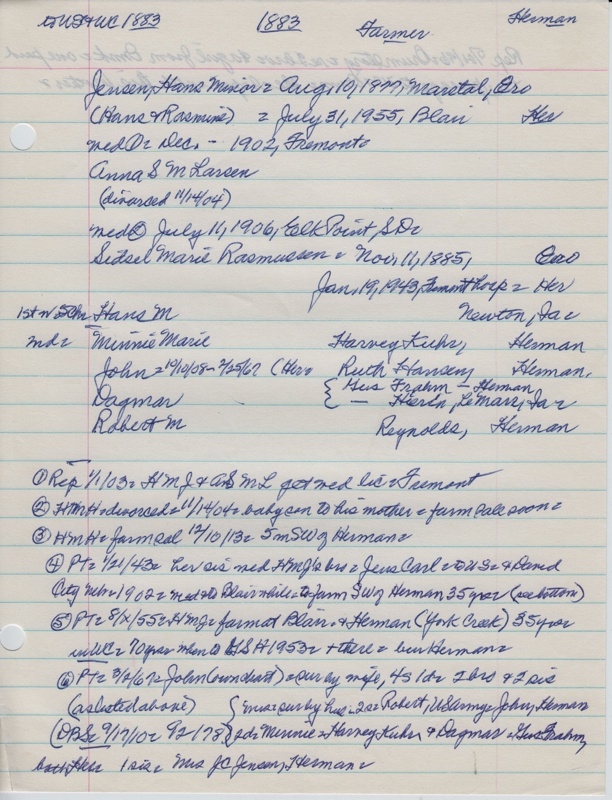 to US & WC 1883 1883 Farmer Herman
Jensen, Hans Minor = Aug, 10, 1877, Marstal, Ero
(Hans & Rasmine) = July 31, 1955, Blair Her
med ① = Dec. - 1902, Fremont =
Anna S M Larsen
(divorced 11/14/04)
med ② July 11, 1906, Elk Point, S D =
Sidsel Marie Rasmussen = Nov, 11, 1885, Ero
Jan, 19, 1943, Fremont hosp = Her
1st m Son Hans M Newton, Ia =
md = Minnie Marie Harvey Kuhr, Herman
John = 10/08 - 2/25/67 (Her = Ruth Hansen, Herman,
Dagmar { Gus Frahm - Herman
- LeMars, Ia =
Robert M Reynolds, Herman
① Rep 1/1/03 = H M J & A S M L get med lic = Fremont
② H M H = divorced = 11/14/04 = baby son to his mother = farm sale soon =
③ H M H = farm sal 12/10/13 = 5 m SW of Herman =
④ PT = 1/21/43 = her sis med HMJ's bro = Jens Carl = to US = & David
City Neb = 1902 = med = to Blair while = to farm SW of Herman 35 yrs = (see bottom)
⑤ PT = 8/x/55 = HMJ = farm at Blair & Herman (York Creek) 35 yrs =
in WC = 70 yrs = when to 1953 = & there = bur Herman =
⑥ PT = 3/2/67 = John = sur by wife, 4 s 1 d = 2 bros & 2 sis
(as listed above) { sur by hus = 2 s = Robert, US army = John, Herman
(OBS = 9/17/10 = 9/2/78) { 2 d = Minnie = Harvey Kuhr & Dagmar = Gus Frahm,
both Her = 1 sis = Mrs J C Jensen, Herman =